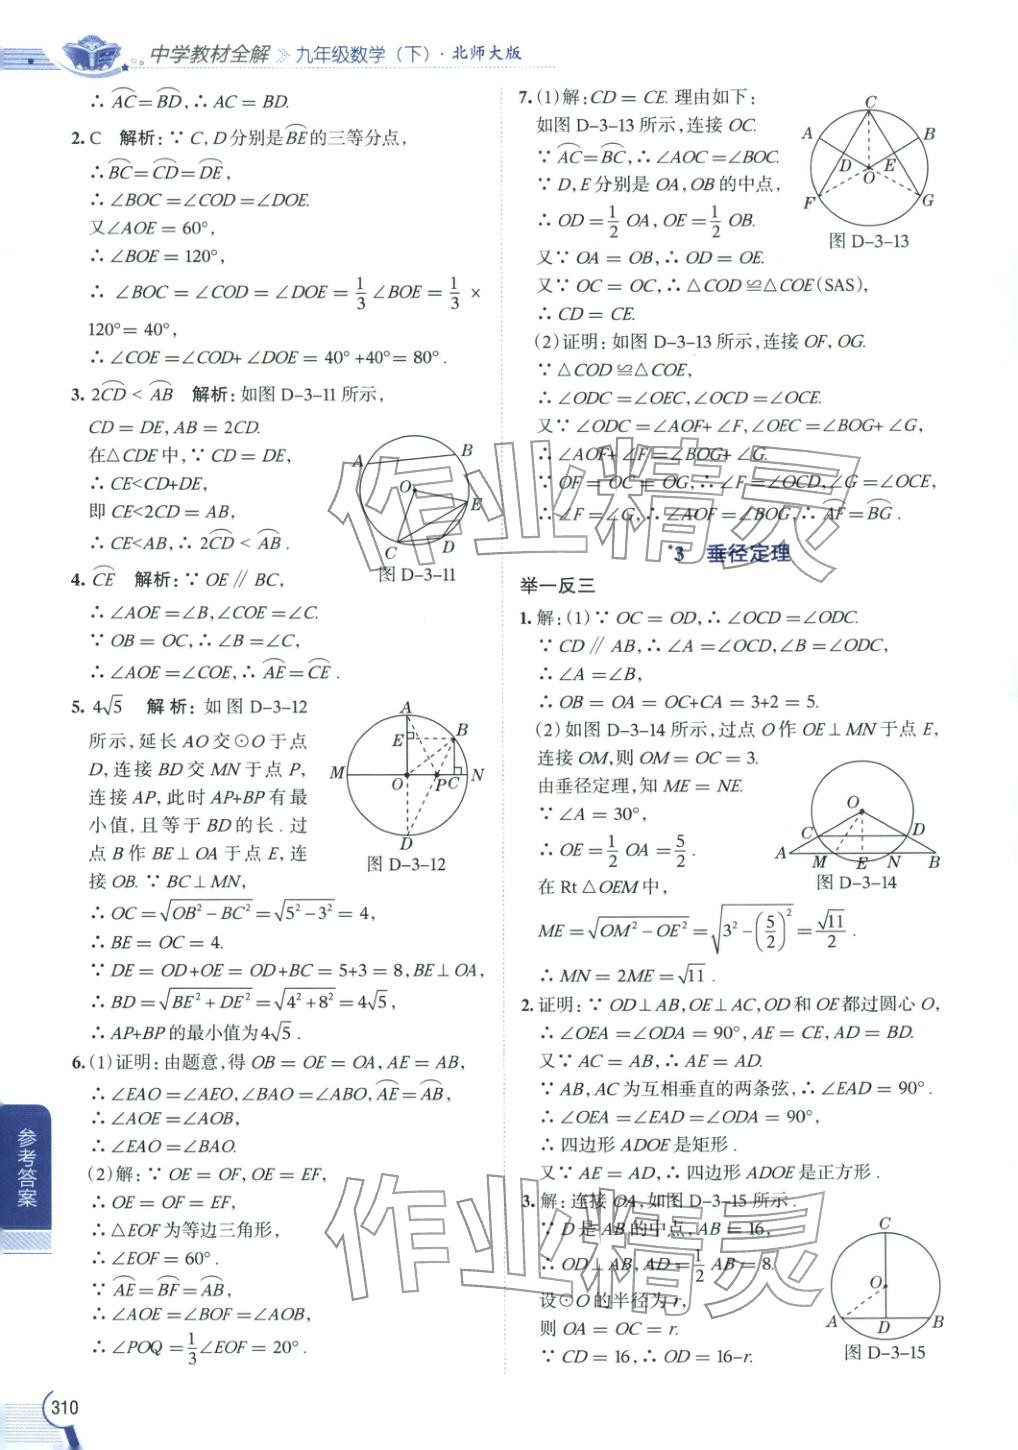 中学教材全解 九年级数学（下）·北师大版
∴ AC=BD,∴ AC = BD.
2. C 解析:∵ C,D分别是BE的三等分点,
∴BC=CD=DE,
∴ ∠BOC =∠COD =∠DOE.
又∠AOE = 60°,
∴ ∠BOE = 120°,
∴ ∠BOC = ∠COD = ∠DOE = 1/3 ∠BOE = 1/3 ×
120°= 40°,
∴ ∠COE =∠COD+ ∠DOE = 40° +40°= 80°.
3. 2CD < AB 解析:如图 D-3-11 所示,
CD = DE, AB = 2CD.
在△CDE 中,∵ CD = DE,
∴ CE<CD+DE,
即 CE<2CD = AB,
∴ CE<AB,∴ 2CD < AB.
A
B
O
E
C
D
图 D-3-11
4. CE 解析:∵ OE∥BC,
∴ ∠AOE =∠B,∠COE =∠C.
∵ OB = OC,∴ ∠B =∠C,
∴ ∠AOE =∠COE,∴ AE=CE.
5. 4√5 解析:如图 D-3-12
所示,延长 AO交⊙O于点
D,连接 BD交 MN于点 P,
连接 AP,此时 AP+BP有最
小值,且等于 BD的长.过
点 B作 BE⊥OA于点 E,连
接 OB. ∵ BC⊥MN,
A
E
B
M
O
P
C
N
D
图 D-3-12
∴ OC =√(OB²-BC²)=√(5²-3²)= 4,
∴ BE = OC = 4.
∵ DE = OD+OE = OD+BC = 5+3 = 8, BE⊥OA,
∴ BD=√(BE²+DE²)=√(4²+8²)= 4√5,
∴ AP+BP的最小值为4√5.
6. (1)证明:由题意,得 OB = OE = OA, AE = AB,
∴ ∠EAO =∠AEO,∠BAO =∠ABO, AE=AB,
∴ ∠AOE =∠AOB,
∴ ∠EAO =∠BAO.
(2)解:∵ OE = OF, OE = EF,
∴ OE = OF = EF,
∴ △EOF为等边三角形,
∴ ∠EOF = 60°.
∵ AE=BF=AB,
∴ ∠AOE =∠BOF =∠AOB,
∴ ∠POQ =1/3∠EOF = 20°.
7. (1)解:CD = CE. 理由如下:
如图 D-3-13 所示,连接 OC.
∵ AC=BC,∴ ∠AOC =∠BOC.
∵ D, E分别是 OA, OB的中点,
∴ OD =1/2 OA, OE =1/2 OB.
又∵ OA = OB,∴ OD = OE.
又∵ OC = OC,∴ △COD≌△COE(SAS),
∴ CD = CE.
C
A
B
D
E
O
F
G
图 D-3-13
(2)证明:如图 D-3-13 所示,连接 OF, OG.
∵ △COD≌△COE,
∴ ∠ODC =∠OEC,∠OCD =∠OCE.
又∵ ∠ODC =∠AOF+ ∠F,∠OEC =∠BOG+ ∠G,
∴ ∠AOF+ ∠F =∠BOG+ ∠G.
∵ OF = OC = OG,∴ ∠F =∠OCD,∠G =∠OCE,
∴ ∠F =∠G,∴ ∠AOF =∠BOG,∴ AF=BG.
*3 垂径定理
举一反三
1. 解:(1)∵ OC = OD,∴ ∠OCD =∠ODC.
∵ CD∥AB,∴ ∠A =∠OCD,∠B =∠ODC,
∴ ∠A =∠B,
∴ OB = OA = OC+CA = 3+2 = 5.
(2)如图 D-3-14 所示,过点 O作 OE⊥MN于点 E,
连接 OM,则 OM = OC = 3.
由垂径定理,知 ME = NE.
∵ ∠A = 30°,
∴ OE=1/2 OA =5/2.
在 Rt△OEM中,
O
C
D
A
M
E
N
B
图 D-3-14
ME =√(OM²-OE²)=√(3²-(5/2)²)=√11/2.
∴ MN = 2ME =√11.
2. 证明:∵ OD⊥AB, OE⊥AC, OD和 OE都过圆心 O,
∴ ∠OEA =∠ODA = 90°, AE = CE, AD = BD.
又∵ AC = AB,∴ AE = AD.
∵ AB, AC为互相垂直的两条弦,∴ ∠EAD = 90°.
∴ ∠OEA =∠EAD =∠ODA = 90°,
∴ 四边形 ADOE是矩形.
又∵ AE = AD,∴ 四边形 ADOE是正方形.
3. 解:连接 OA,如图 D-3-15 所示.
∵ D是 AB的中点, AB = 16,
∴ OD⊥AB, AD = 1/2 AB = 8.
设⊙O的半径为 r,
则 OA = OC = r.
∵ CD = 16,∴ OD = 16-r.
C
O
A
D
B
图 D-3-15
参考答案
310
作业精灵
作业精灵